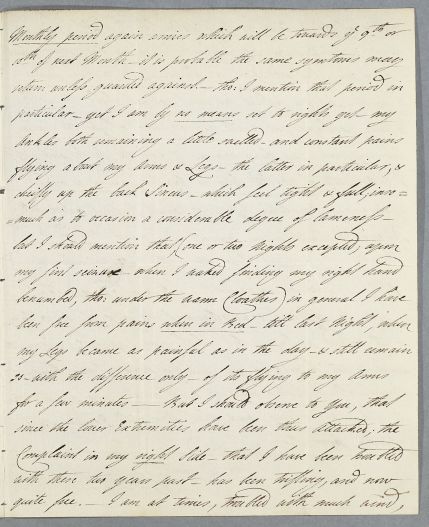 Monthly period again arrives which will be towards ye 9th or
10th of next Month - it is probable the same symtoms may
return unless guarded against - tho: I mention that period in
particular - yet I am by no means set to rights yet - my
Ankles both remaining a little swelled - and constant pains
flying about my Arms & Legs - the latter in particular, &
chiefly up the back Sinews - which feel tight & full, inas=
=much as to occasion a considerable degree of lameness -
but I should mention that (one or two Nights excepted, upon
my first seizure - when I waked finding my right hand
benumbed, tho: under the warm Cloaths) in general I have
been free from pains when in Bed - till last Night, when
my Legs became as painful as in the day - & still remain
so - with the difference only - of its flying to my Arms
for a few minutes - But I should observe to you, that
since the lower Extremities have been thus attacked, the
Complaint in my right Side - that I have been troubled
with these two years past - has been trifling, and now
quite free. - I am at times, troubled with much wind,